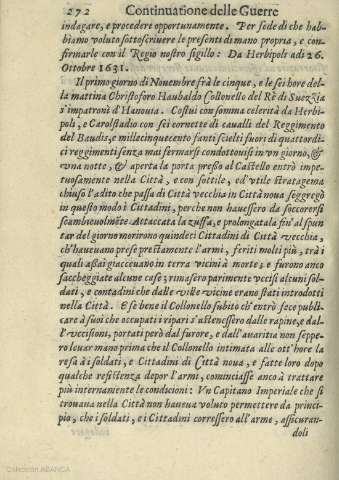 272 Continuatione delle Guerre
indagare, e procedere opportunamente. Per fede di che hab-
biamo voluto sottoscriuere le presenti di mano propria, e con-
firmarle con il Regio nostro sigillo: Da Herbipoli adi 26.
Ottobre 1631.
Il primo giorno di Nouembre frà le cinque, e le sei hore del-
la mattina Christoforo Haubaldo Collonello del Rè di Suezzia
s'impatronì d'Hanouia. Costui con somma celerità da Herbi-
poli, e Carolstadio con sei cornette di caualli del Reggimento
del Baudis, e millecinquecento fanti scielti fuori di quattordi-
ci reggimenti senza mai fermarsi condottouisi in vn giorno, &
vna notte, & aperta la porta presso al Castello entrò impe-
tuosamente nella Città, e con sottile, ed vtile stratagema
chiuso l'adito che passa di Città vecchia in Città noua seggregò
in questo modo i Cittadini, perche non hauessero da soccorersi
scambieuolmēte. Attaccata la zuffa, e prolongatala fin'al spun
tar del giorno morirono quindeci Cittadini di Città vecchia,
ch'haueuano prese prestamente l'armi, feriti molti più, trà i
quali assai giaceuano in terra vicini à morte; e furono anco
saccheggiate alcune case; rimasero parimente vccisi alcuni sol-
dati, e contadini che dalle ville vicine erano stati introdotti
nella Città. E se bene il Collonello subito ch'entrò fece publi-
care à suoi che occupati i ripari s'astenessero dalle rapine, e dal-
l'vccisioni, portati però dal furore, e dall'auaritia non seppe-
ro leuar mano prima che il Collonello intimata alle ott'hore la
resa à i soldati, e Cittadini di Città noua, e fatte loro dopo
qualche resistenza depor l'armi, cominciasse anco à trattare
più internamente le condicioni: Vn Capitano Imperiale che si
trouaua nella Città non haueua voluto permettere da princi-
pio, che i soldati, e i Cittadini corressero all'arme, assicuran-
doli
Colección ABANCA